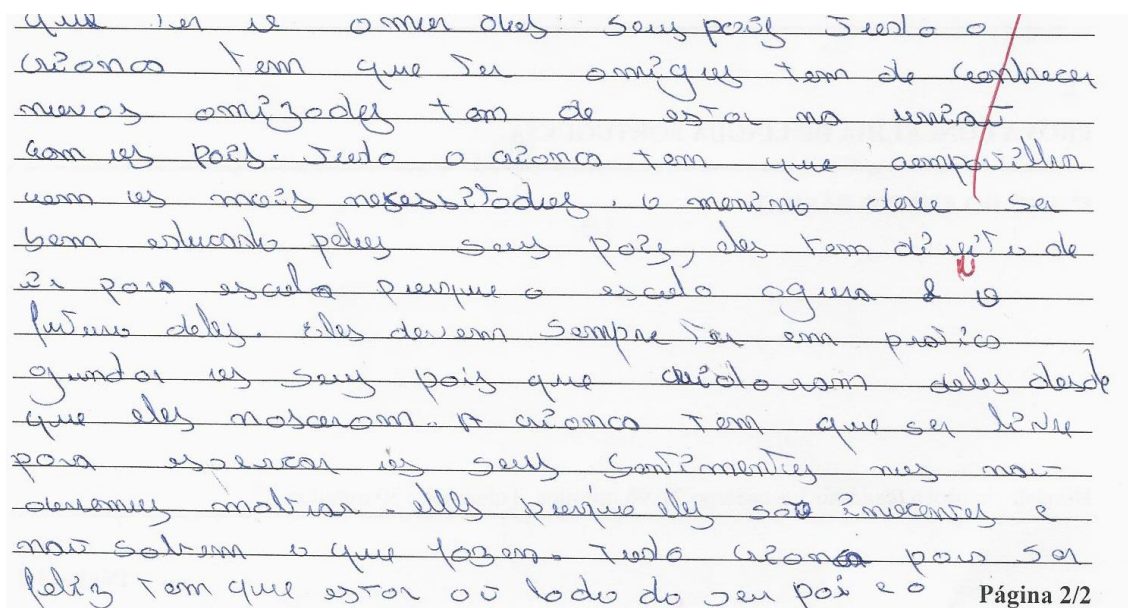 que ter o amor des seus pais Tudo o
criança tem que ter amigus tem de conhecer
novos amizades tem de estar na uniaũ
com us pais. Tudo o criança tem que compatilhar
com us mais nesessitados. o menino deve ser
bem educado pelus seus pais, eles tem direitu de
ir para escola purque a escola agura é o
futuro deles. Eles devem sempre ter em pratica
ajudar us seus pais que cuidaram deles desde
que eles nasceram. A criança tem que ser livre
para espersar us seus sentimentus nus naũ
devemus eles purque eles saõ inocentes e
naũ sabem o que fazem. Tudo criança para ser
feliz tem que estar aũ lado do seu pai e a
Página 2/2